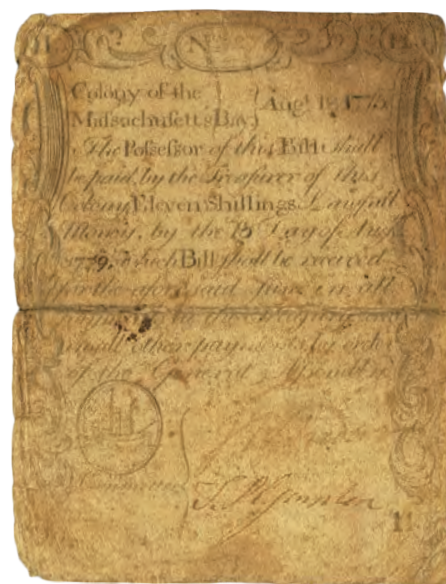 11. No 11.
Colony of the
Massachusetts Bay } Augt 18 1775
The Possessor of this Bill shall
be paid by the Treasurer of this
Colony Eleven Shillings Lawfull
Money, by the 18 Day of Augt
1779. which Bill shall be received
for the aforesaid Sum in all
payments at the
in all other payments by order
of the General Assembly
Committee
11